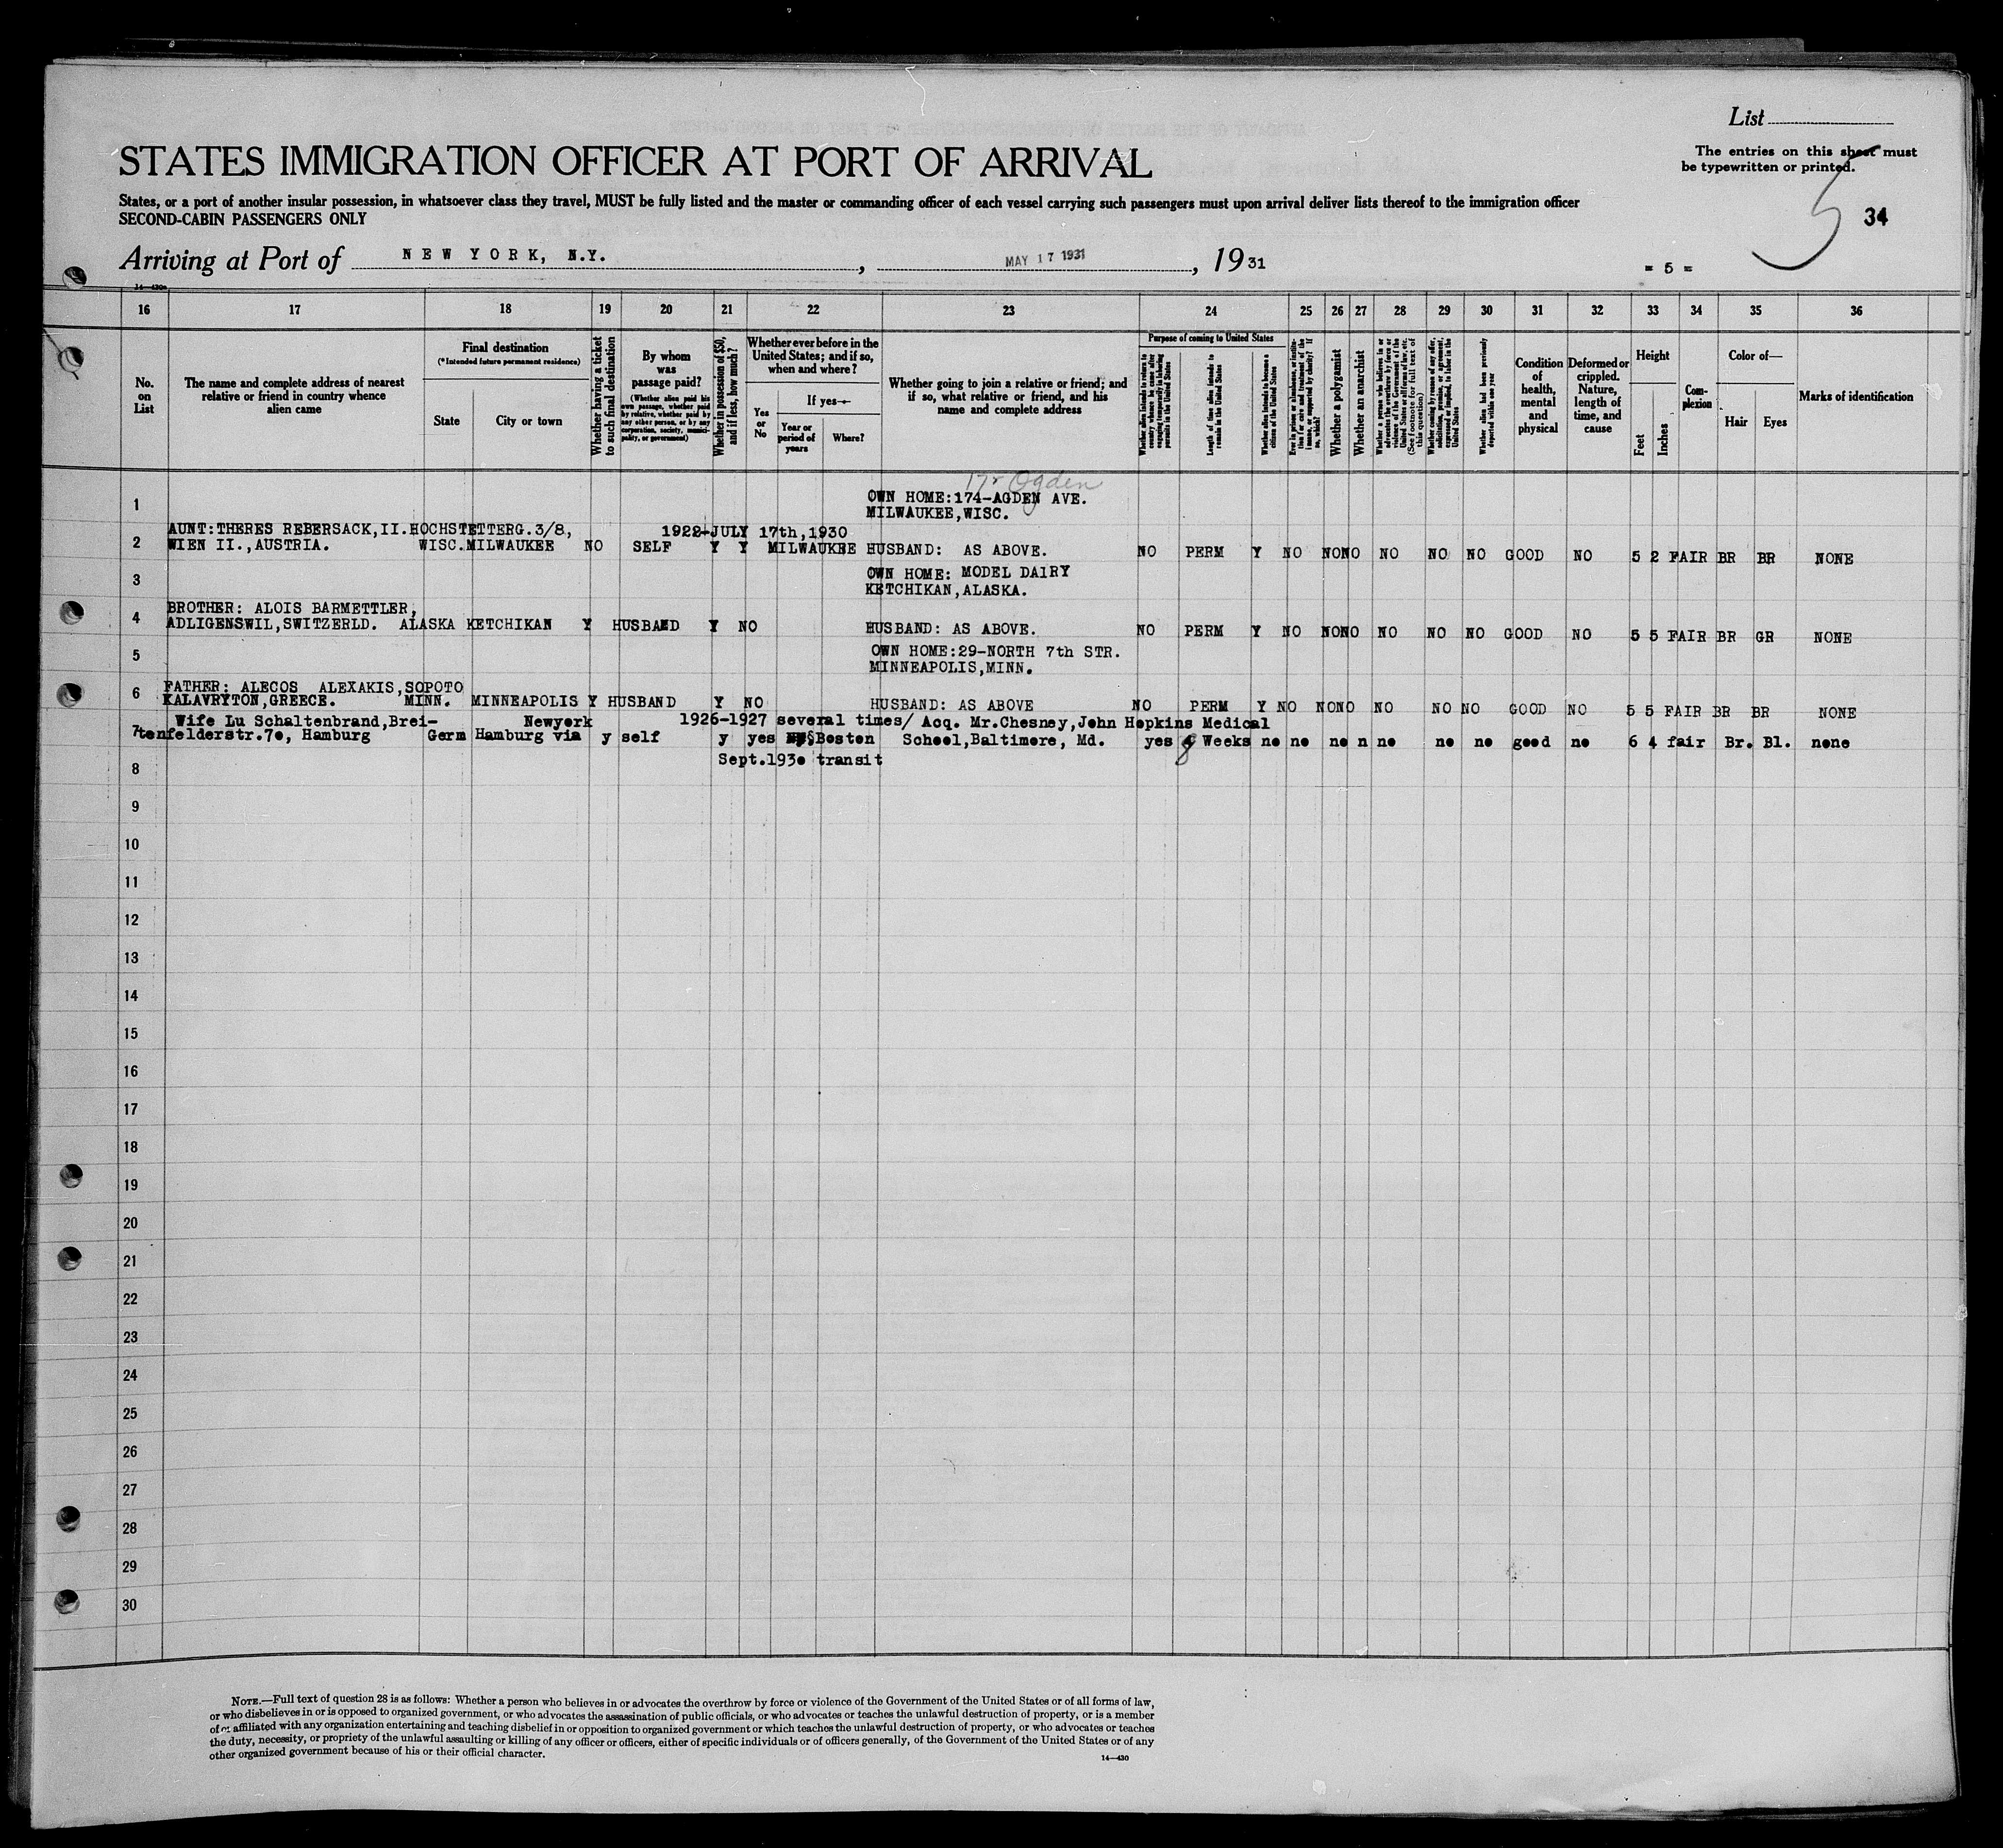 List
The entries on this sheet must
be typewritten or printed.
STATES IMMIGRATION OFFICER AT PORT OF ARRIVAL
5
34
States, or a port of another insular possession, in whatsoever class they travel, MUST be fully listed and the master or commanding officer of each vessel carrying such passengers must upon arrival deliver lists thereof to the immigration officer
SECOND-CABIN PASSENGERS ONLY
Arriving at Port of NEW YORK, N.Y. , MAY 17 1931 , 1931
= 5 =
14—430a
16 17 18 19 20 21 22 23 24 25 26 27 28 29 30 31 32 33 34 35 36
No.
on
List
The name and complete address of nearest
relative or friend in country whence
alien came
Final destination
(*Intended future permanent residence)
State
City or town
Whether having a ticket
to such final destination
By whom
was
passage paid?
(Whether alien paid his
own passage, whether paid
by relative, whether paid by
any other person, or by any
corporation, society, munici-
pality, or government)
Whether in possession of $50,
and if less, how much?
Whether ever before in the
United States; and if so,
when and where?
Yes
or
No
If yes—
Year or
period of
years
Where?
Whether going to join a relative or friend; and
if so, what relative or friend, and his
name and complete address
Purpose of coming to United States
Whether alien intends to return to
country whence he came after
engaging temporarily in laboring
pursuits in the United States
Length of time alien intends to
remain in the United States
Whether alien intends to become a
citizen of the United States
Ever in prison or almshouse, or institu-
tion for care and treatment of the
insane, or supported by charity? If
so, which?
Whether a polygamist
Whether an anarchist
Whether a person who believes in or
advocates the overthrow by force or
violence of the Government of the
United States or all forms of law, etc.
(See footnote for full text of
this question)
Whether coming by reason of any offer,
solicitation, promise, or agreement,
expressed or implied, to labor in the
United States
Whether alien had been previously
deported within one year
Condition
of
health,
mental
and
physical
Deformed or
crippled.
Nature,
length of
time, and
cause
Height
Feet
Inches
Com-
plexion
Color of—
Hair
Eyes
Marks of identification
Ogden
1 OWN HOME:174-AGDEN AVE.
MILWAUKEE,WISC.
AUNT:THERES REBERSACK,II.HOCHSTETTERG.3/8, 1922-JULY 17th,1930
2 WIEN II.,AUSTRIA. WISC.MILWAUKEE NO SELF Y Y MILWAUKEE HUSBAND: AS ABOVE. NO PERM Y NO NONO NO NO NO GOOD NO 5 2 FAIR BR BR NONE
3 OWN HOME: MODEL DAIRY
KETCHIKAN,ALASKA.
BROTHER: ALOIS BARMETTLER,
4 ADLIGENSWIL,SWITZERLD. ALASKA KETCHIKAN Y HUSBAND Y NO HUSBAND: AS ABOVE. NO PERM Y NO NONO NO NO NO GOOD NO 5 5 FAIR BR GR NONE
5 OWN HOME:29-NORTH 7th STR.
MINNEAPOLIS,MINN.
FATHER: ALECOS ALEXAKIS,SOPOTO
6 KALAVRYTON,GREECE. MINN. MINNEAPOLIS Y HUSBAND Y NO HUSBAND: AS ABOVE NO PERM Y NO NONO NO NO NO GOOD NO 5 5 FAIR BR BR NONE
Wife Lu Schaltenbrand,Brei- Newyork 1926-1927 several times/ Acq. Mr.Chesney,John Hopkins Medical
7 tenfelderstr.70, Hamburg Germ Hamburg via y self y yes Boston School,Baltimore, Md. yes 8 Weeks no no no n no no no good no 6 4 fair Br. Bl. none
Sept.1930 transit
8
9
10
11
12
13
14
15
16
17
18
19
20
21
22
23
24
25
26
27
28
29
30
NOTE.—Full text of question 28 is as follows: Whether a person who believes in or advocates the overthrow by force or violence of the Government of the United States or of all forms of law,
or who disbelieves in or is opposed to organized government, or who advocates the assassination of public officials, or who advocates or teaches the unlawful destruction of property, or is a member
of or affiliated with any organization entertaining and teaching disbelief in or opposition to organized government or which teaches the unlawful destruction of property, or who advocates or teaches
the duty, necessity, or propriety of the unlawful assaulting or killing of any officer or officers, either of specific individuals or of officers generally, of the Government of the United States or of any
other organized government because of his or their official character.
14—430